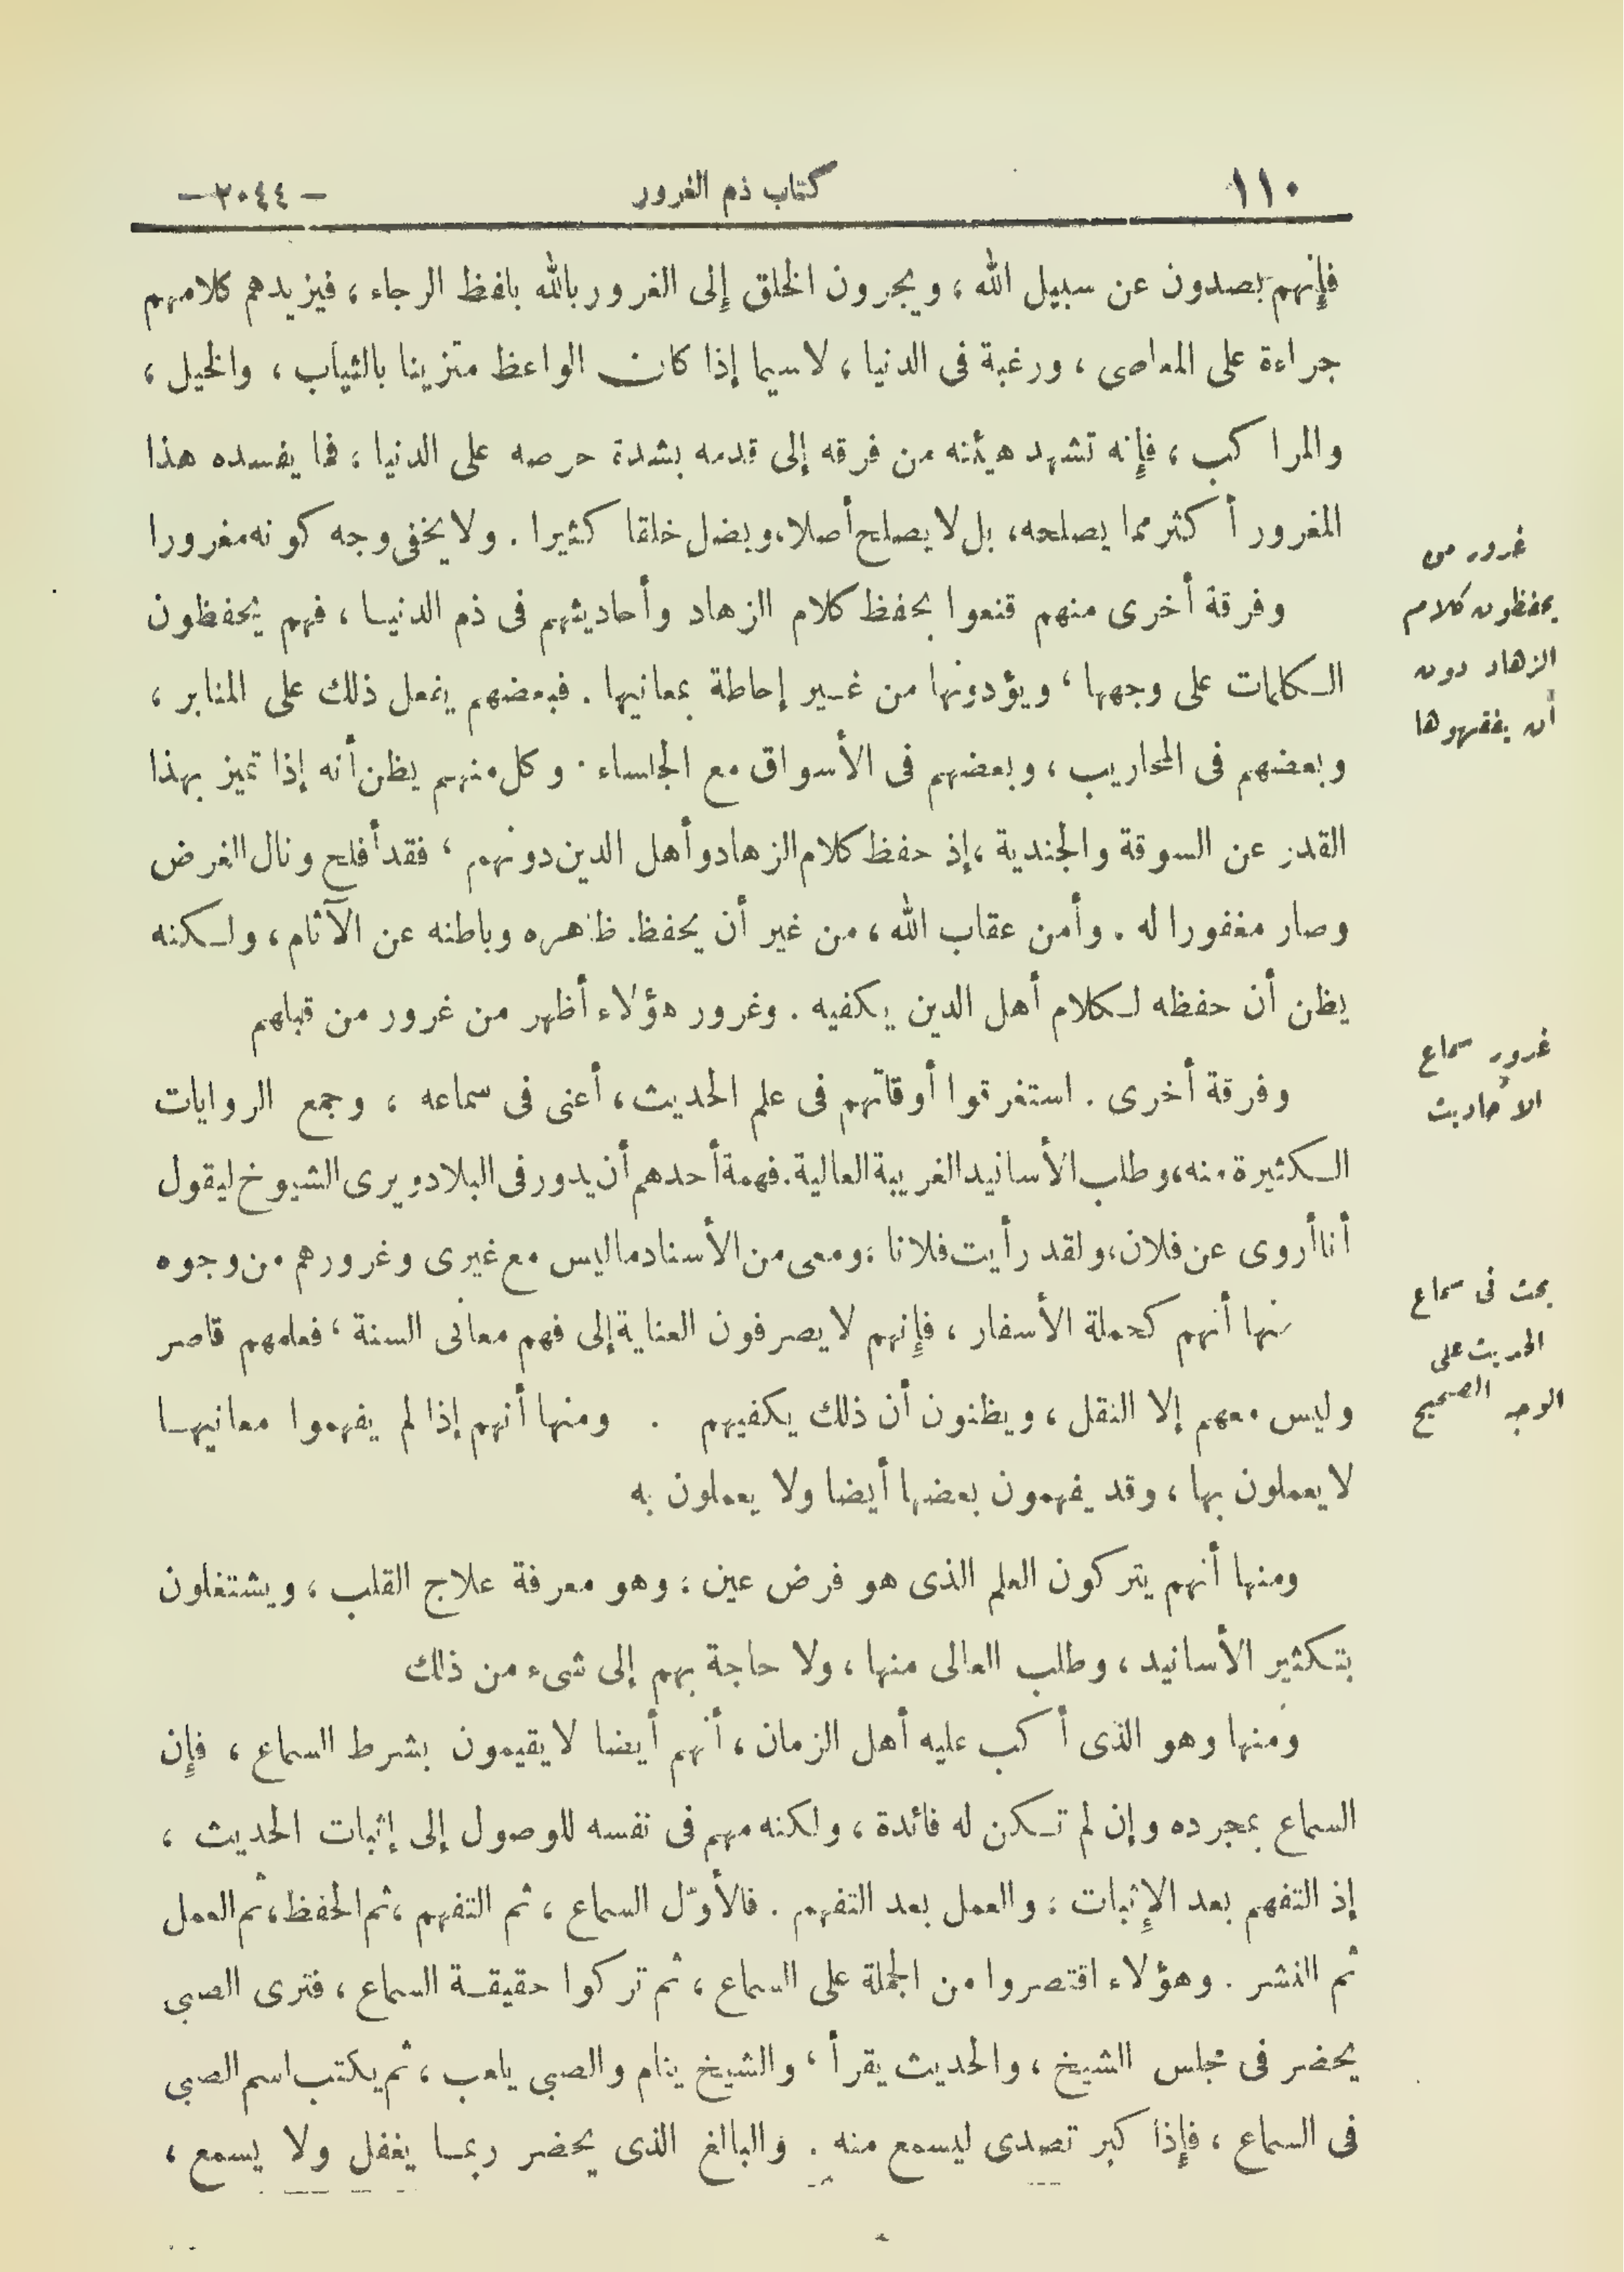 ١١٠
كتاب ذم الغرور
— ٢٠٤٤ —
فإنهم يصدون عن سبيل الله ، ويجرون الخلق إلى الغرور بالله بلفظ الرجاء ، فيزيدهم كلامهم
جراءة على المعاصى ، ورغبة فى الدنيا ، لاسيما إذا كان الواعظ متزينا بالثياب ، والخيل ،
والمراكب ، فإنه تشهد هيئته من فرقه إلى قدمه بشدة حرصه على الدنيا ، فما يفسده هذا
المغرور أكثر مما يصلحه، بل لا يصلح أصلا، ويضل خلقا كثيرا . ولا يخفى وجه كونه مغرورا
وفرقة أخرى منهم قنعوا بحفظ كلام الزهاد وأحاديثهم فى ذم الدنيا ، فهم يحفظون
الكلمات على وجهها ، ويؤدونها من غير إحاطة بمعانيها . فبعضهم يفعل ذلك على المنابر ،
وبعضهم فى المحاريب ، وبعضهم فى الأسواق مع الجلساء . وكل منهم يظن أنه إذا تميز بهذا
القدر عن السوقة والجندية ، إذ حفظ كلام الزهاد وأهل الدين دونهم ، فقد أفلح ونال الغرض
وصار مغفورا له . وأمن عقاب الله ، من غير أن يحفظ ظاهره وباطنه عن الآثام ، ولكنه
يظن أن حفظه لكلام أهل الدين يكفيه . وغرور هؤلاء أظهر من غرور من قبلهم
وفرقة أخرى . استغرقوا أوقاتهم فى علم الحديث ، أعنى فى سماعه ، وجمع الروايات
الكثيرة منه، وطلب الأسانيد الغريبة العالية. فهمة أحدهم أن يدور فى البلاد ويرى الشيوخ ليقول
أنا أروى عن فلان، ولقد رأيت فلانا ، ومعى من الأسناد ما ليس مع غيرى وغرورهم من وجوه
منها أنهم كحملة الأسفار ، فإنهم لا يصرفون العناية إلى فهم معانى السنة ، فعلمهم قاصر
وليس معهم إلا النقل ، ويظنون أن ذلك يكفيهم . ومنها أنهم إذا لم يفهموا معانيها
لا يعملون بها ، وقد يفهمون بعضها أيضا ولا يعملون به
ومنها أنهم يتركون العلم الذى هو فرض عين ، وهو معرفة علاج القلب ، ويشتغلون
بتكثير الأسانيد ، وطلب العالى منها ، ولا حاجة بهم إلى شىء من ذلك
ومنها وهو الذى أكب عليه أهل الزمان ، أنهم أيضا لا يقيمون بشرط السماع ، فإن
السماع بمجرده وإن لم تكن له فائدة ، ولكنه مهم فى نفسه للوصول إلى إثبات الحديث ،
إذ التفهم بعد الإثبات ، والعمل بعد التفهم . فالأوّل السماع ، ثم التفهم ، ثم الحفظ ، ثم العمل
ثم النشر . وهؤلاء اقتصروا من الجملة على السماع ، ثم تركوا حقيقة السماع ، فترى الصبى
يحضر فى مجلس الشيخ ، والحديث يقرأ ، والشيخ ينام والصبى يلعب ، ثم يكتب اسم الصبى
فى السماع ، فإذا كبر تصدى ليسمع منه . والبالغ الذى يحضر ربما يغفل ولا يسمع ،
غرور من
يحفظون كلام
الزهاد دون
أن يفقهوها
غرور سماع
الأحاديث
بحث فى سماع
الحديث على
الوجه الصحيح